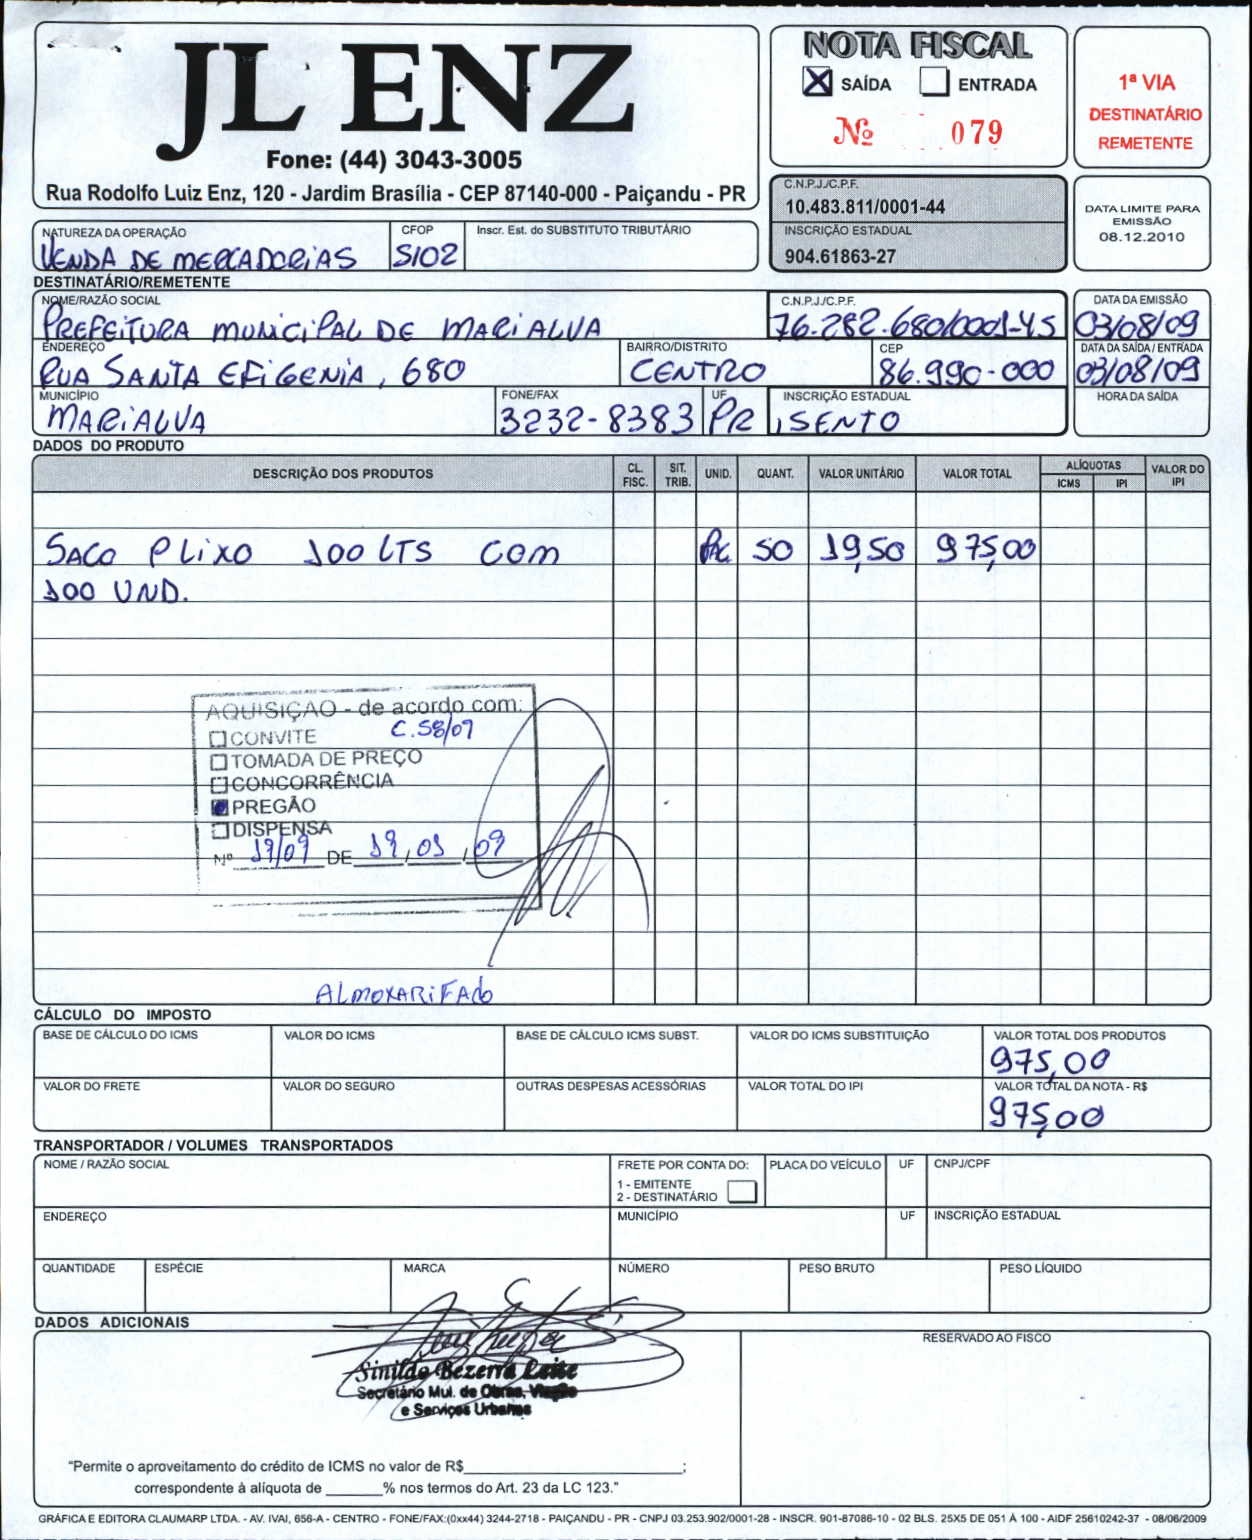 JL ENZ
Fone: (44) 3043-3005
Rua Rodolfo Luiz Enz, 120 - Jardim Brasília - CEP 87140-000 - Paiçandu - PR
NOTA FISCAL
SAÍDA ENTRADA
Nº 079
1ª VIA
DESTINATÁRIO
REMETENTE
C.N.P.J./C.P.F.
10.483.811/0001-44
INSCRIÇÃO ESTADUAL
904.61863-27
DATA LIMITE PARA
EMISSÃO
08.12.2010
NATUREZA DA OPERAÇÃO CFOP Inscr. Est. do SUBSTITUTO TRIBUTÁRIO
VENDA DE MERCADORIAS 5102
DESTINATÁRIO/REMETENTE
NOME/RAZÃO SOCIAL C.N.P.J./C.P.F. DATA DA EMISSÃO
PREFEITURA MUNICIPAL DE MARIALVA 76.282.680/0001-45 03/08/09
ENDEREÇO BAIRRO/DISTRITO CEP DATA DA SAÍDA / ENTRADA
RUA SANTA EFIGENIA, 680 CENTRO 86.990-000 03/08/09
MUNICÍPIO FONE/FAX UF INSCRIÇÃO ESTADUAL HORA DA SAÍDA
MARIALVA 3232-8383 PR ISENTO
DADOS DO PRODUTO
DESCRIÇÃO DOS PRODUTOS CL. FISC. SIT. TRIB. UNID. QUANT. VALOR UNITÁRIO VALOR TOTAL ALÍQUOTAS ICMS IPI VALOR DO IPI
SACO P LIXO 100 LTS COM PAC 50 19,50 975,00
100 UND.
AQUISIÇÃO - de acordo com:
CONVITE C.58/09
TOMADA DE PREÇO
CONCORRÊNCIA
PREGÃO
DISPENSA
Nº 19/09 DE 19/03/09
ALMOXARIFADO
CÁLCULO DO IMPOSTO
BASE DE CÁLCULO DO ICMS VALOR DO ICMS BASE DE CÁLCULO ICMS SUBST. VALOR DO ICMS SUBSTITUIÇÃO VALOR TOTAL DOS PRODUTOS
975,00
VALOR DO FRETE VALOR DO SEGURO OUTRAS DESPESAS ACESSÓRIAS VALOR TOTAL DO IPI VALOR TOTAL DA NOTA - R$
975,00
TRANSPORTADOR / VOLUMES TRANSPORTADOS
NOME / RAZÃO SOCIAL FRETE POR CONTA DO: PLACA DO VEÍCULO UF CNPJ/CPF
1 - EMITENTE
2 - DESTINATÁRIO
ENDEREÇO MUNICÍPIO UF INSCRIÇÃO ESTADUAL
QUANTIDADE ESPÉCIE MARCA NÚMERO PESO BRUTO PESO LÍQUIDO
DADOS ADICIONAIS
RESERVADO AO FISCO
Sinildo Bezerra Leite
Secretário Mul. de Obras, Viação
e Serviços Urbanos
"Permite o aproveitamento do crédito de ICMS no valor de R$ ;
correspondente à alíquota de % nos termos do Art. 23 da LC 123."
GRÁFICA E EDITORA CLAUMARP LTDA. - AV. IVAI, 656-A - CENTRO - FONE/FAX:(0xx44) 3244-2718 - PAIÇANDU - PR - CNPJ 03.253.902/0001-28 - INSCR. 901-87086-10 - 02 BLS. 25X5 DE 051 À 100 - AIDF 25610242-37 - 08/06/2009